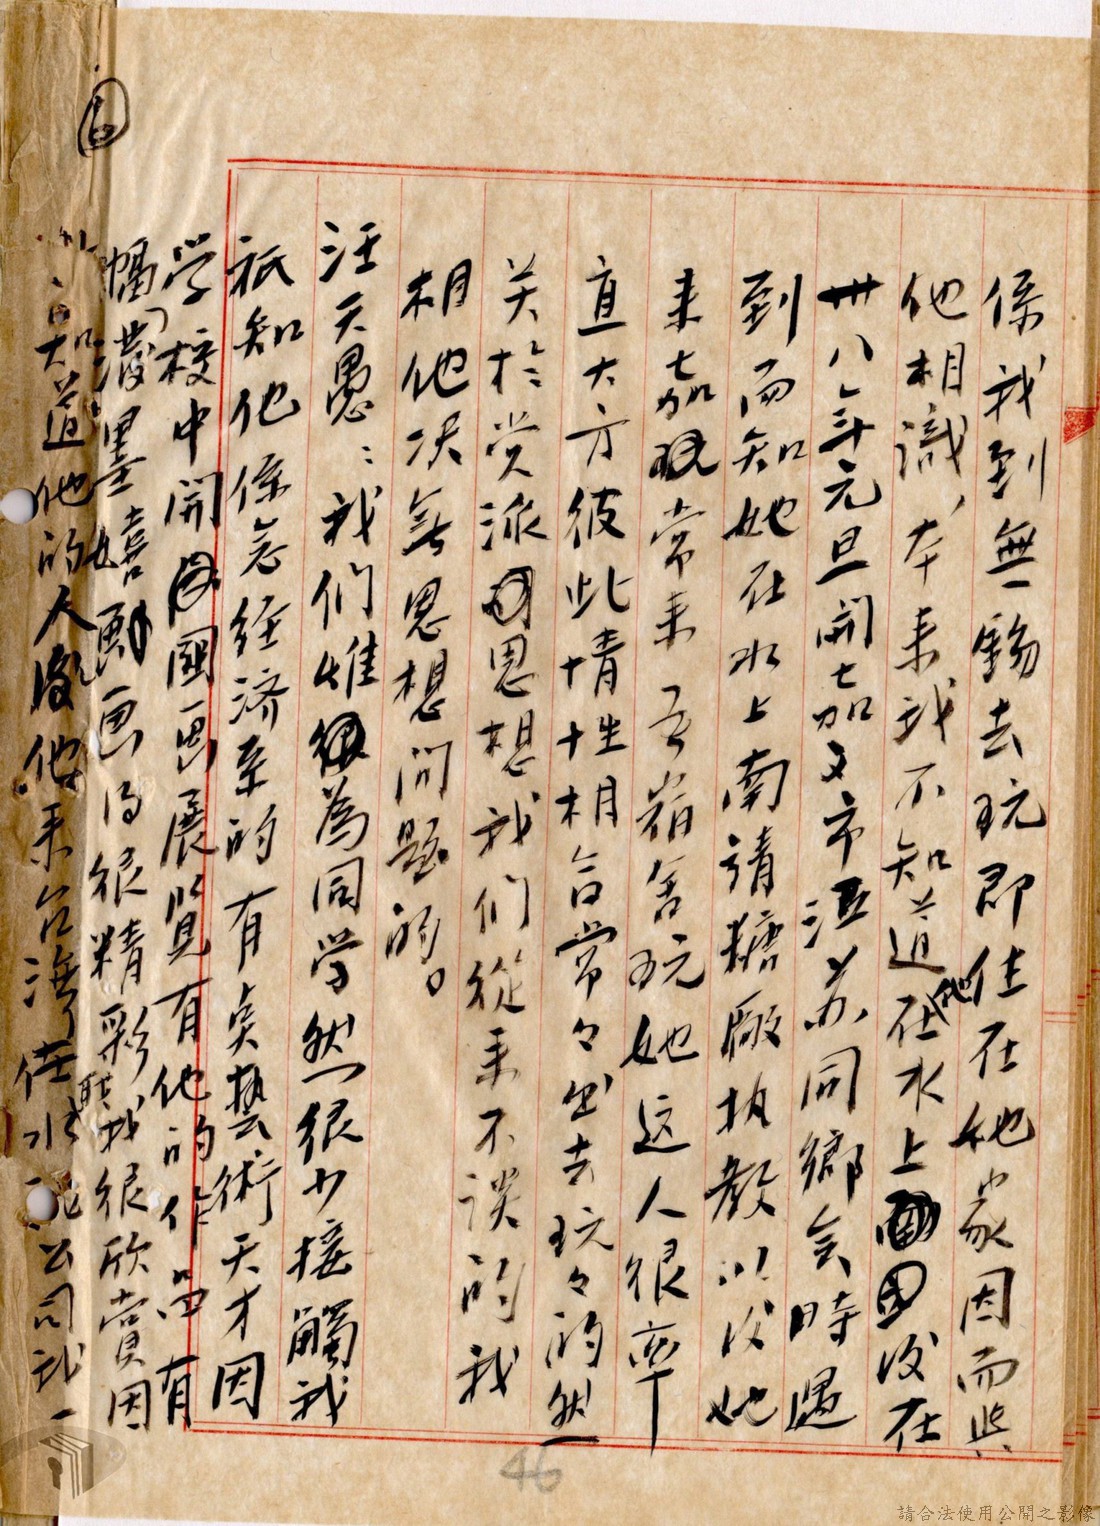 係我到無錫去玩即住在她家因而與
他相識，本來我不知道他在水上國後在
卅八年元旦開嘉义市江苏同鄉会時遇
到而知她在水上南靖糖廠执教以後她
來嘉玩常來吾宿舍玩她这人很率
直大方彼此情性相合常々出去玩々的然
关於党派思想我们從来不談的我
相他决無思想问题的。
汪天愚：我们雖為同学然很少接觸我
祇知他係念经济系的有美藝術天才因
学校中開國画展覧有他的作品有
幅潑墨嬉画得很精彩我很欣賞因
知道他的人後他来台湾任水公司我一
46
請合法使用公開之影像